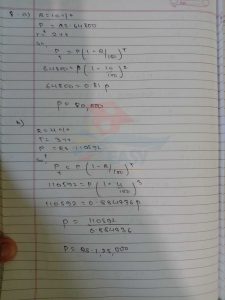 8 a) R = 10 %
P = RS 64800
T = 2 yr
P = P ( 1 - R / 100 )
64800 = P ( 1 - 10 / 100 ) 2
64800 = 0.81 P
P = 80,000
b)
R = 4 %
T = 3 yr
P = RS 110592
P = P ( 1 - R / 100 )
110592 = P ( 1 - 4 / 100 ) 3
110592 = 0.884736 P
P = 110592
0.884736
P = RS 1,25,000